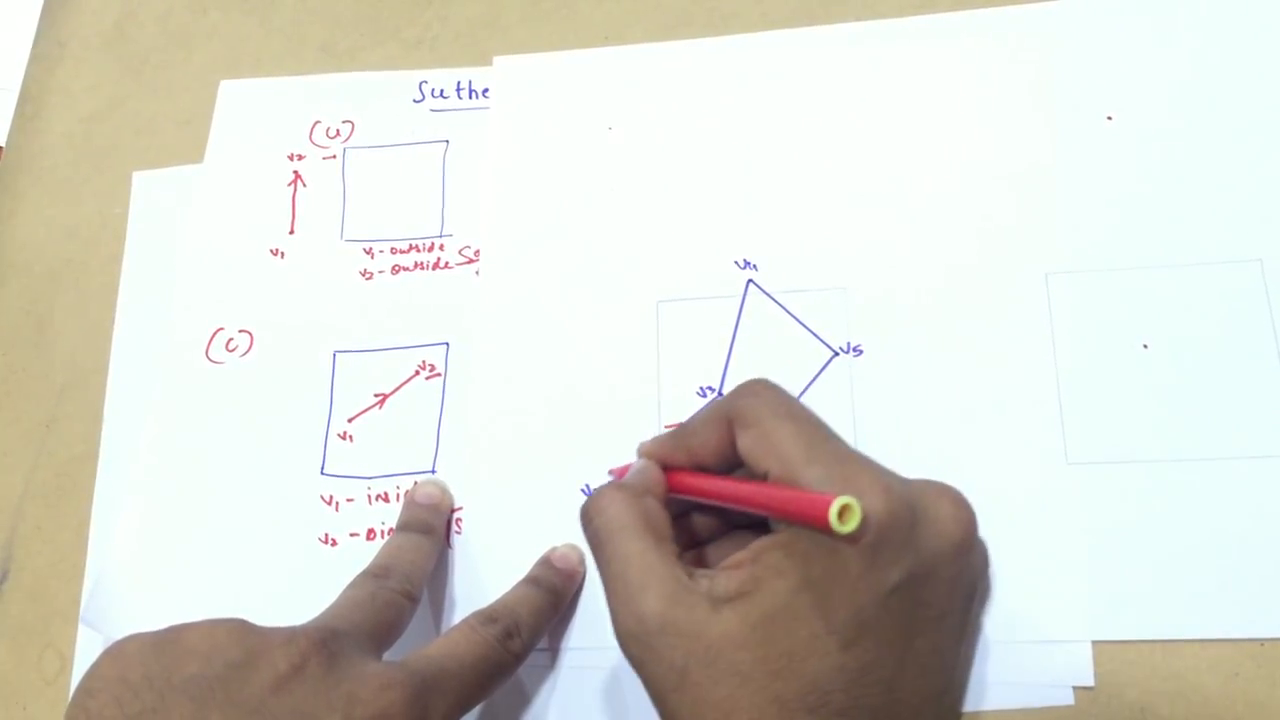 Suthe
(a)
v2
v1
v1-outside
v2-outside
(c)
v2
v1
v1-insi
v4
v5
v3